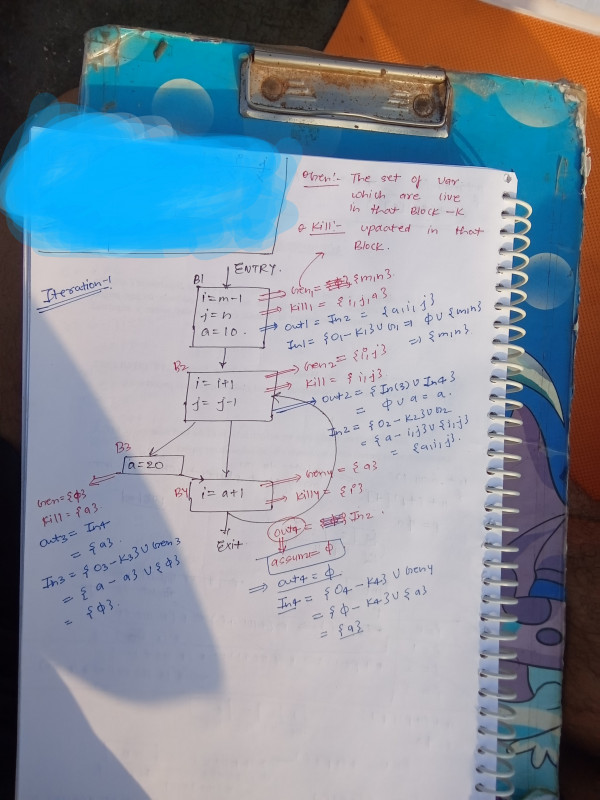 Gen:- The set of var
which are live
in that Block - K
& Kill:- updated in that
Block.
Iteration-1
ENTRY.
B1
i = m-1
j = n
a = 10.
Gen1 = {m,n}
Kill1 = {i,j,a}
out1 = In2 = {a,i,j}
In1 = {O1-K1} U G1 => φ U {m,n}
=> {m,n}
B2
i = i+1
j = j-1
Gen2 = {i,j}
Kill = {i,j}
out2 = {In(3) U In4}
= φ U a = a.
In2 = {O2-K2} U G2
= {a-i,j} U {i,j}
= {a,i,j}.
B3
a = 20
Gen = {φ}
Kill = {a}
out3 = In4
= {a}
In3 = {O3-K3} U Gen3
= {a-a} U {φ}
= {φ}
B4
i = a+1
Gen4 = {a}
Kill4 = {i}
Exit
out4 = In2.
assume = φ
=> out4 = φ
In4 = {O4-K4} U Gen4
= {φ-K4} U {a}
= {a}